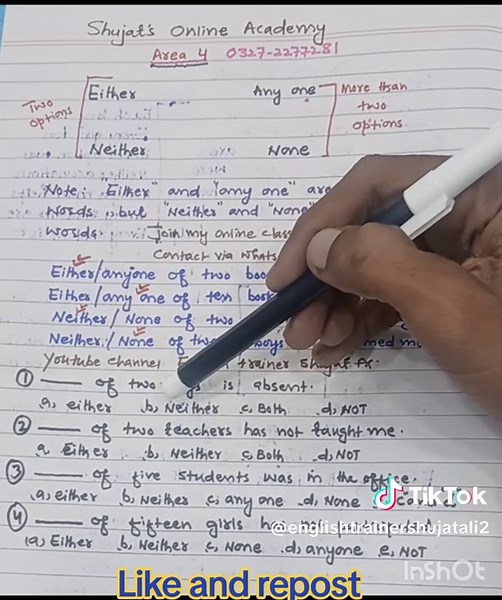 Shujat's Online Academy
Area 4 0327-2277281
Either Any one More than
Two options two
options.
Neither None
Note: "Either" and "any one" are
words, but "Neither" and "None"
words. Join my online class
Contact via Whats
Either/anyone of two boo
Either/any one of ten book
Neither/None of two
Neither/None of two boys med m
Youtube channel trainer Shujat
① ___ of two is absent.
a, either b, Neither c, Both d, NOT
② ___ of two teachers has not taught me.
a Either b, Neither c, Both d, NOT
③ ___ of five students was in the office.
a, either b, Neither c, any one d, None
④ ___ of fifteen girls has not
(a, Either b, Neither c, None d, anyone e, NOT
TikTok
@englishtrainershujatali2
Like and repost
InShOt